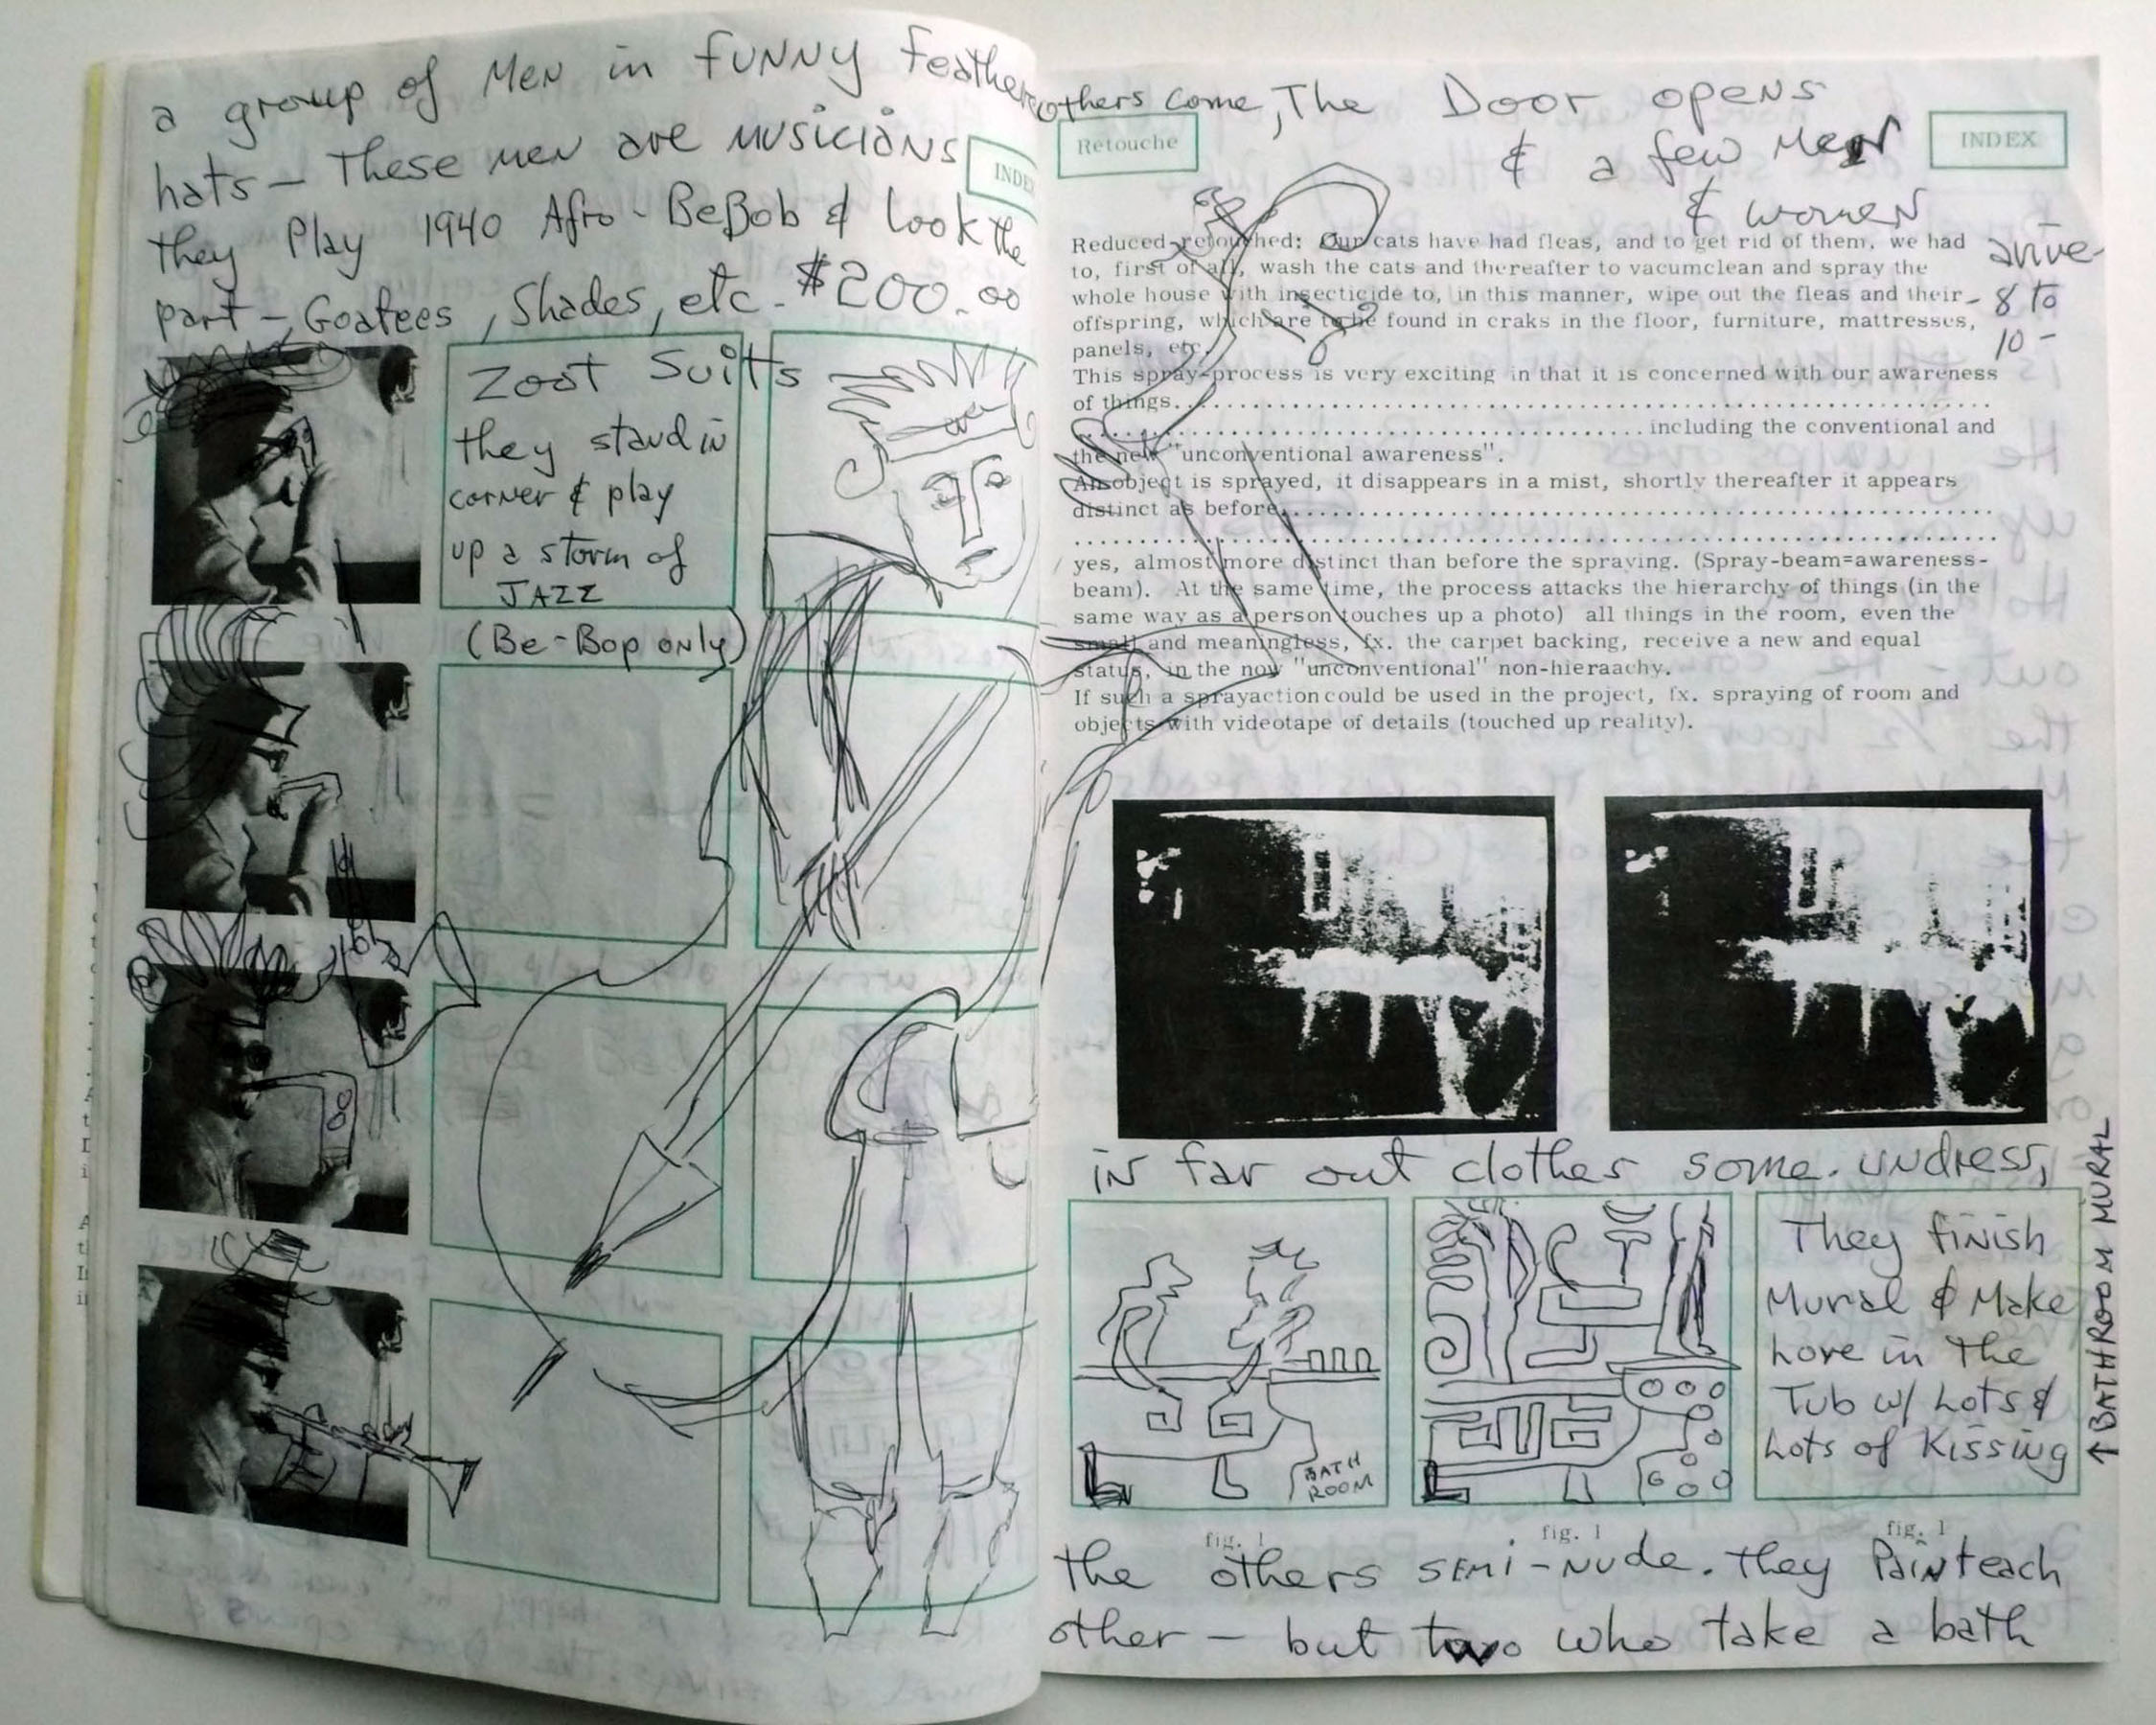 a group of Men in FUNNY Feather
hats — These men are MUSICIANS
INDEX
they Play 1940 Afro-BeBob & look the
part —, Goatees, Shades, etc. $200.00
Zoot Suits
they stand in
corner & play
up a storm of
JAZZ
(Be-Bop only)
others come, The Door opens
Retouche
& a few Men
INDEX
& women
arive-
8 to
10 -
Reduced retouched: Our cats have had fleas, and to get rid of them, we had
to, first of all, wash the cats and thereafter to vacumclean and spray the
whole house with insecticide to, in this manner, wipe out the fleas and their
offspring, which are to be found in craks in the floor, furniture, mattresses,
panels, etc.
This spray-process is very exciting in that it is concerned with our awareness
of things...
...including the conventional and
the new "unconventional awareness".
An object is sprayed, it disappears in a mist, shortly thereafter it appears
distinct as before...
yes, almost more distinct than before the spraying. (Spray-beam=awareness-
beam). At the same time, the process attacks the hierarchy of things (in the
same way as a person touches up a photo) all things in the room, even the
small and meaningless, fx. the carpet backing, receive a new and equal
status, in the now "unconventional" non-hieraachy.
If such a sprayaction could be used in the project, fx. spraying of room and
objects with videotape of details (touched up reality).
in far out clothes some. undress,
BATH
ROOM
They finish
Mural & Make
Love in The
Tub w/ Lots &
Lots of Kissing
↑ BATHROOM MURAL
fig. 1
fig. 1
fig. 1
the others SEMI-NUde. They Paint each
other — but two who take a bath